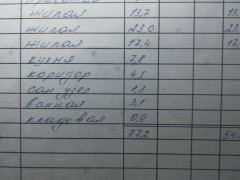 жилая 15,7
жилая 23,0 23
жилая 17,4
кухня 7,8
коридор 4,5
сан. узел 1,3
ванная 3,1
кладовая 0,9
77,2